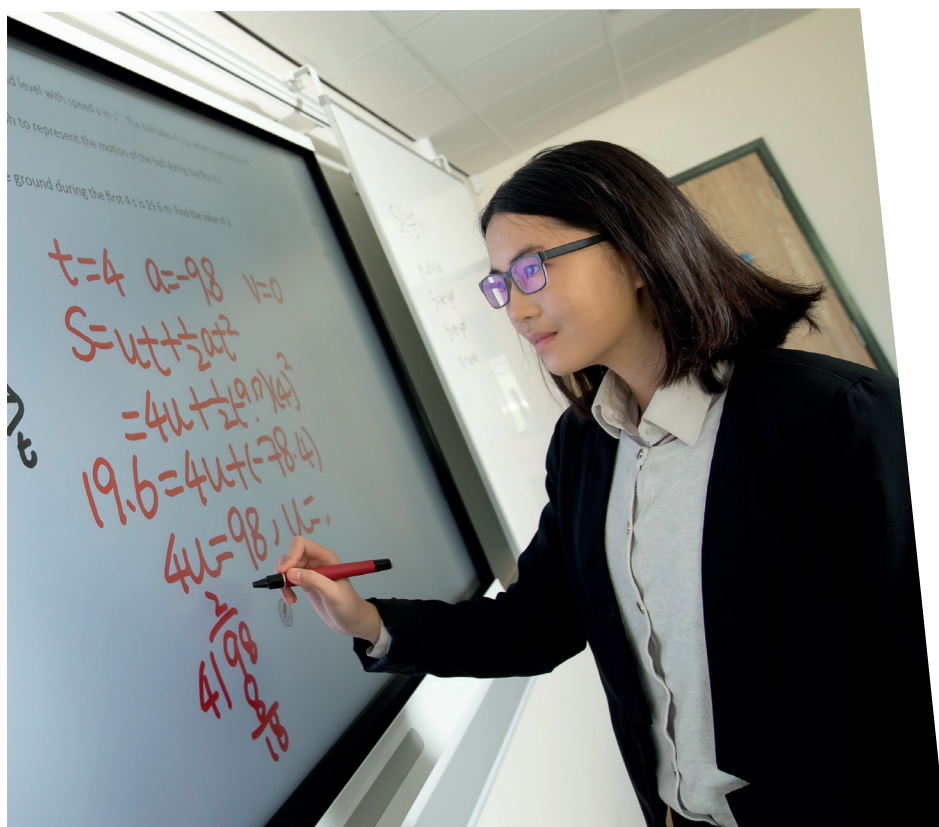 d level with speed u m s⁻¹. The ball takes 4 s to return to ground level
h to represent the motion of the ball during the first 4 s
e ground during the first 4 s is 19.6 m. Find the value of u
t=4 a=-9.8 v=0
S=ut+½at²
=4u+½(-9.8)(4)²
t
19.6=4u+(-78.4)
4u=98, u=
2
4|98
8
18